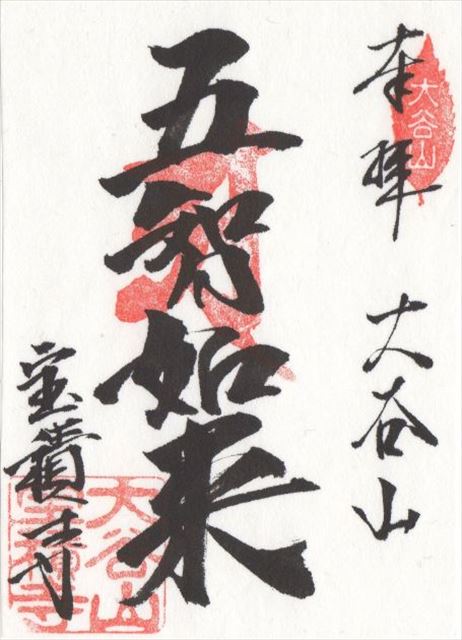 奉拝 大谷山
大谷山
五智如来
宝積寺
大谷山
宝積寺